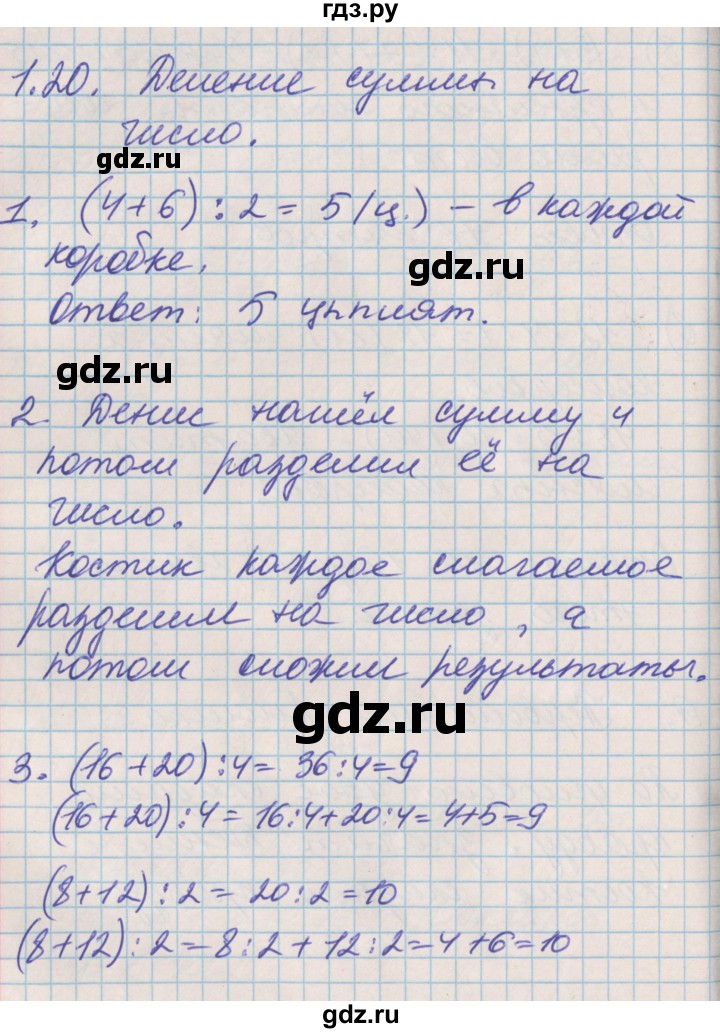 гдз.ру
1.20. Деление суммы на
число.
gdz.ru
1. (4+6) : 2 = 5 (ц.) – в каждой
коробке.
gdz.ru
Ответ: 5 цыплят.
gdz.ru
2. Денис нашёл сумму и
потом разделил её на
число.
Костик каждое слагаемое
разделил на число, а
потом сложил результаты.
gdz.ru
3. (16+20) : 4 = 36 : 4 = 9
(16+20) : 4 = 16:4+20:4 = 4+5=9
gdz.ru
(8+12) : 2 = 20 : 2 = 10
(8+12) : 2 = 8 : 2 + 12 : 2 = 4+6=10
gdz.ru